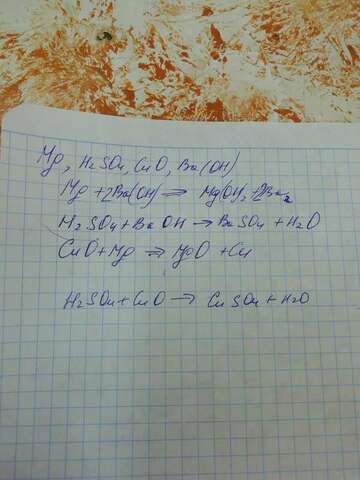 Mg, H2SO4, CuO, Ba(OH)
Mg + 2Ba(OH) → Mg(OH)2 + 2Ba
H2SO4 + BaOH → BaSO4 + H2O
CuO + Mg → MgO + Cu
H2SO4 + CuO → CuSO4 + H2O